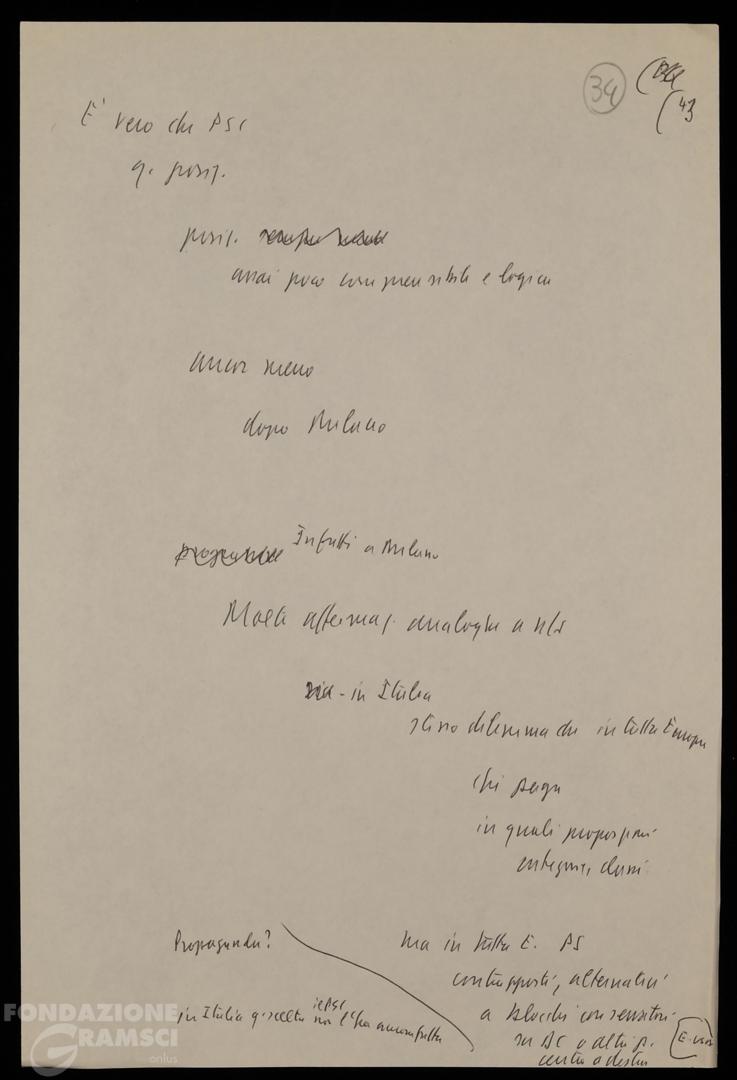 34
43
E' vero che PSI
q. posiz.
posiz.
assai poco comprensibile e logica
ancor meno
dopo Milano
Infatti a Milano
Molte affermaz. analoghe a ns
- in Italia
stesso dilemma che in tutta Europa
chi paga
in quali proporzioni
categorie, classi
Propaganda?
ma in tutta E. PS
contrapposti, alternativi
in Italia q. scelta il PSI non l'ha ancora fatta
a blocchi conservatori
su DC o altri p.
centro o destra
FONDAZIONE
GRAMSCI
onlus